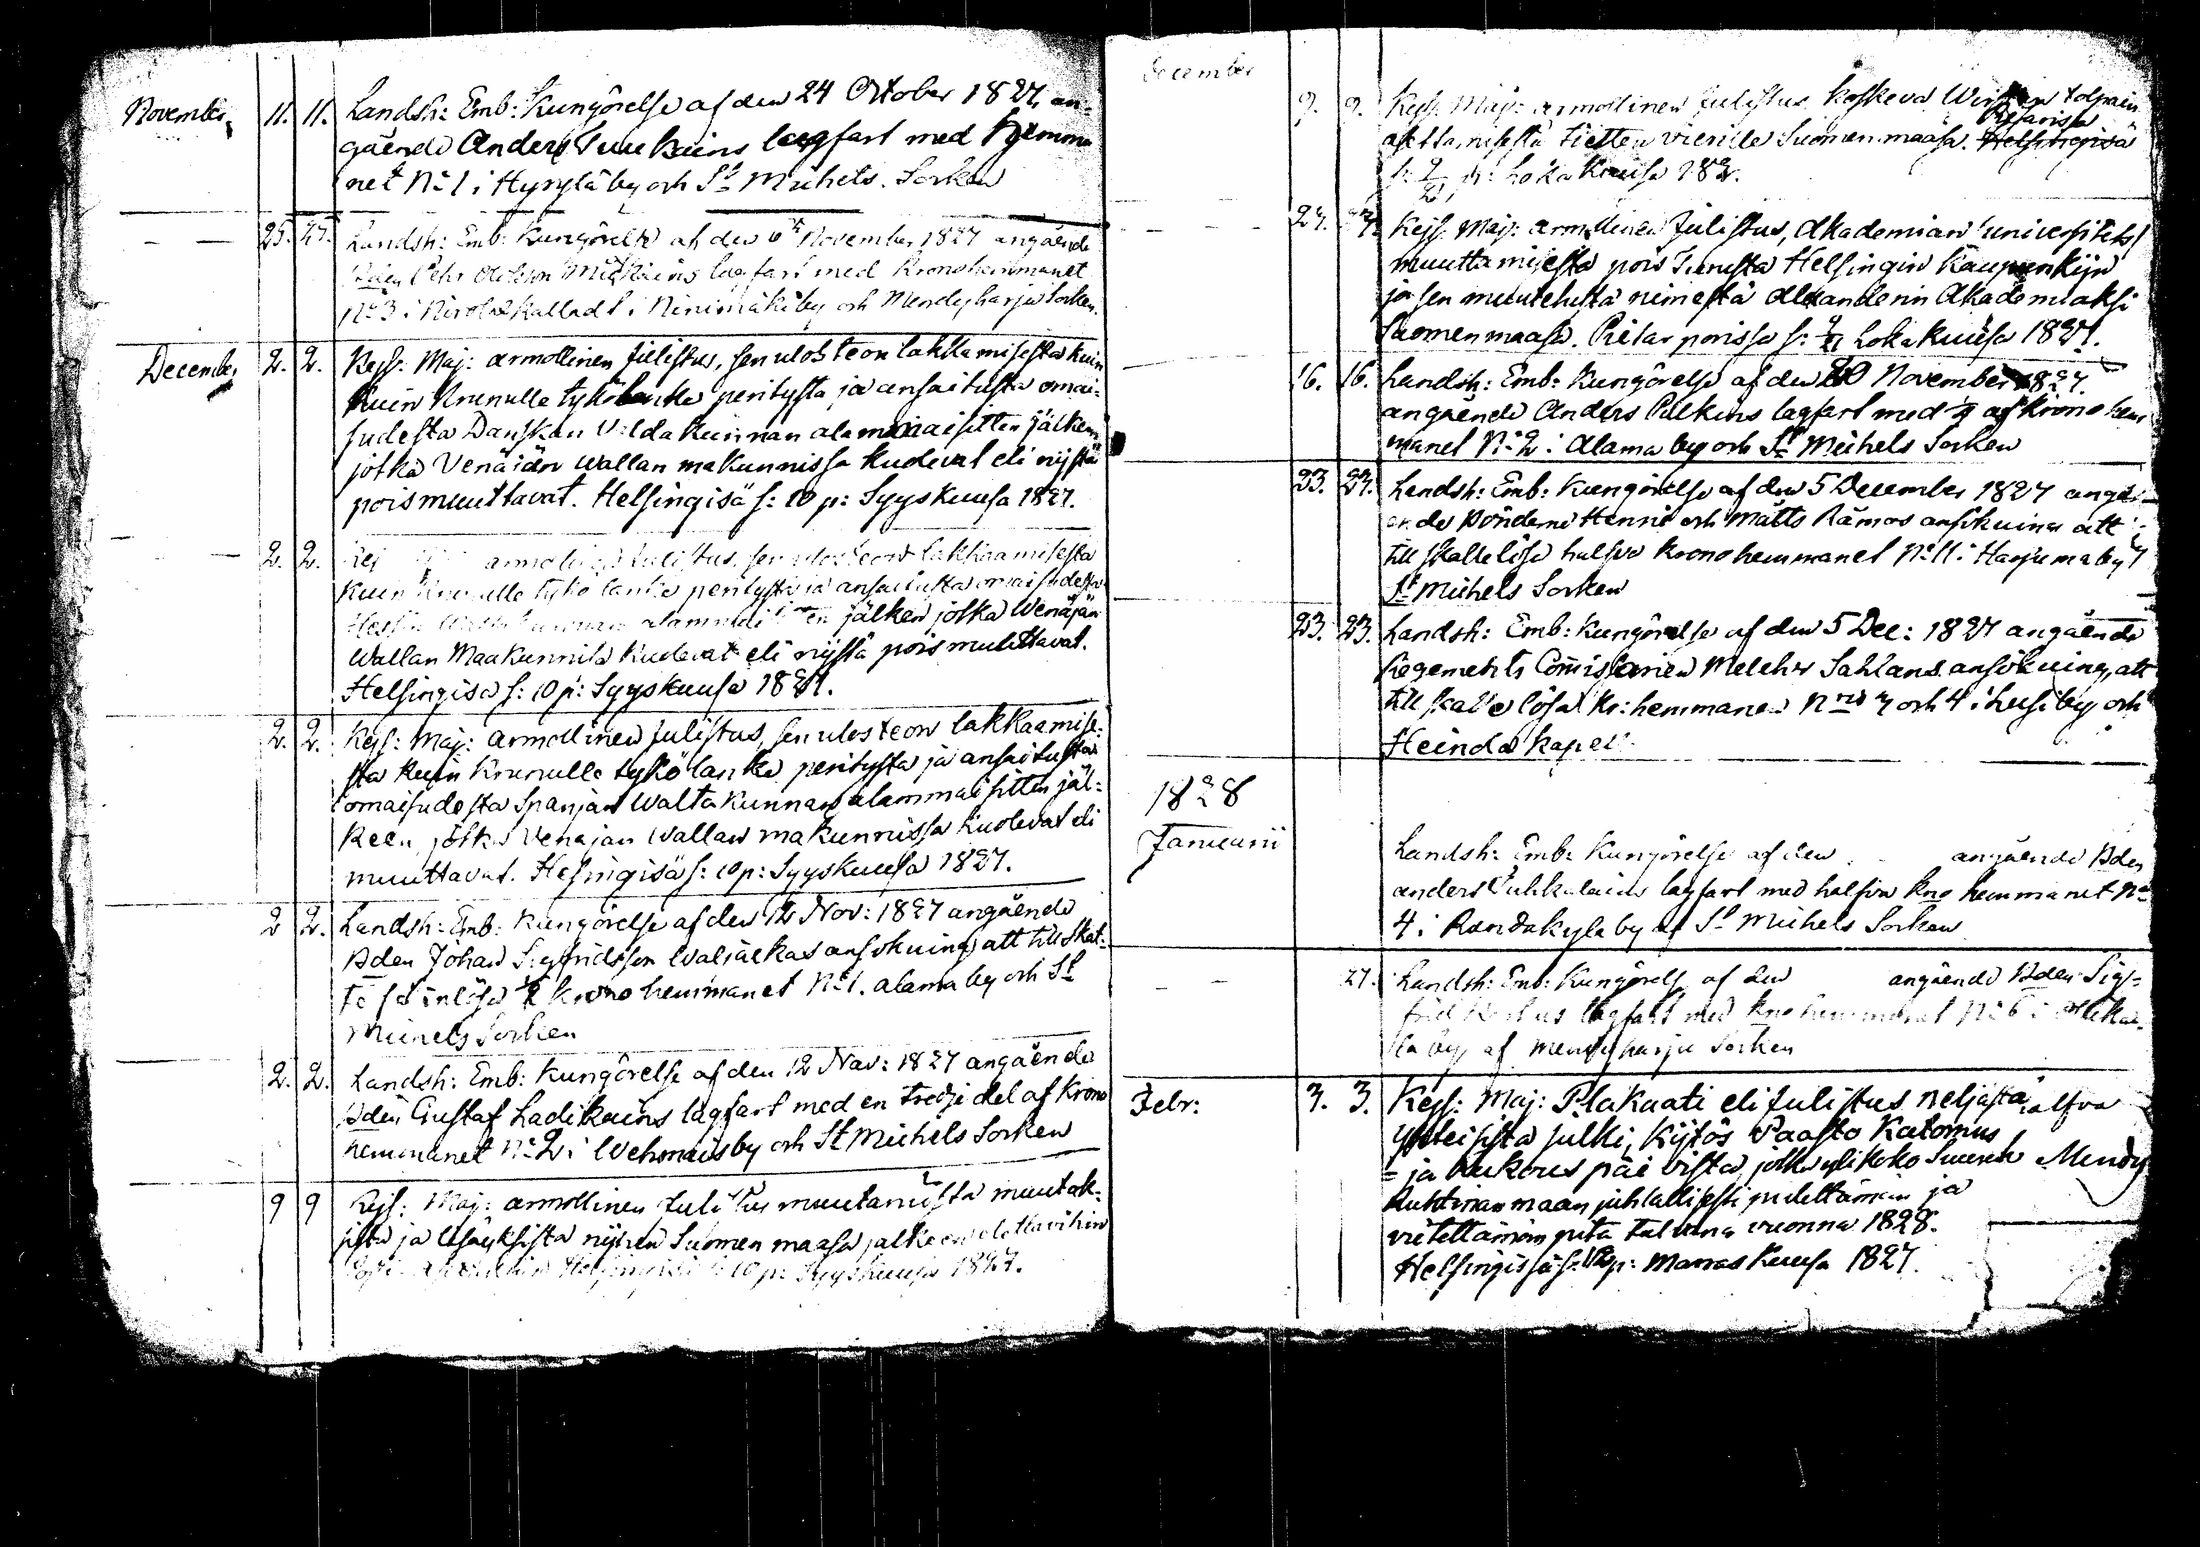 November
11. 11. Landsh: Emb: Kungörelse af den 24 October 1827, an-
gående Anders Tuukains lagfart med Hemma
net No 1 i Hyrylä by och St Michels Socken
25. Landsh: Emb: Kungörelse af den 6te November 1827 angående
Bden Pehr lagfart med Kronohemmanet
No 3 i Ninimäki by och Mendyharju Socken.
December
2. 2. Kejs: Maj: armollinen Julistus, sen ulosteon lakkamisesta kuin
kuin Krunulle tykölanke peritystä ja ansaitusta omai-
sudesta Danskan Valdakunnan alammaisitten jälken
jotka Venäiän wallan makunnissa kudevat eli niistä
pois muuttavat. Helsingisä s: 10 p: Syyskuusa 1827.
2. 2. Kej armollinen Julistus, sen ulosteon lakkaamisesta
kuin Krunulle tykö lanke peritystä ja ansaitusta omaisudesta
jälken jotka Wenäjän
Wallan Maakunnisa Kudevat eli niistä pois muuttavat.
Helsingisa s: 10 p: Syyskuusa 1827.
2. 2. Kejs: Maj: armollinen Julistus, sen ulosteon lakkaamise-
sta kuin Krunulle tykö lanke peritystä ja ansaitusta
omaisudesta Spanjan Waltakunnan alammaisitten jäl-
keen, jotka Venäjan Wallan makunnissa Kuolevat eli
muuttavat. Helsingisä s: 10 p: Syyskuusa 1827.
2 2. Landsh: Emb: Kungörelse af den 12 Nov: 1827 angående
Bden Johan Sigfridsson Waljackas ansökning att till skat-
te få inlösa Krono hemmanet No 1. alama by och St
Michels Socken
2. 2. Landsh: Emb: Kungörelse af den 12 Nov: 1827 angående
Bden Gustaf Ladikains lagfart med en tredjedel af Krono
hemmanet No 2 i Wehmais by och St Michels Socken
9 9 Kejs: Maj: armollinen Julistus muutamista muutok-
sista ja lisäyksistä nijhen Suomen maasa
s: 10 p: Syyskuusa 1827.
December
9. 9. Kejs: Maj: armollinen Julistus koskeva tolpain
asettamisesta tietten vierille Suomen maasa. Pietarissa Helsingisä
Lokakuusa 182.
27. 27. Kejs: Maj: armollinen Julistus, Akademian (universitets)
muuttamisesta pois Turusta Helsingin Kaupunkijn
ja sen muutetusta nimestä Alexanderin Akademiaksi
Suomenmaasa. Pietarporissa s: Lokakuusa 1827.
16. 16. Landsh: Emb: Kungörelse af den 20 November 1827.
angående Anders Pulkins lagfart med af Krono hem
manet No 2 i Alama by och St Michels Socken
23. 23. Landsh: Emb: Kungörelse af den 5 December 1827 angå-
ende Bönderne Henric och Matts Rämos ansökning att
till skatte lösa halfva Kronohemmanet No 11 i Harjuma by
St Michels Socken
23. 23. Landsh: Emb: Kungörelse af den 5 Dec: 1827 angående
Regements Comissarien Melcher Sahlans ansökning, att
till skatte lösa Kr: hemmanen Nris 7 och 4 i Lusi by och
Heinola Kapell.
1828
Januarii
Landsh: Emb: Kungörelse af den angående Bden
anders lagfart med halfva kno hemmanet No
4 i Randakyla by af St Michels Socken
27. Landsh: Emb: Kungörelse af den angående Bden Sig-
frid lagfart med kno hemmanet No 6 i
la by af Mendyharju Socken
Febr:
3. 3. Kejs: Maj: Plakaati eli Julistus neljästä
yhteisistä Julki, Kijtös Paasto Katomus
= ja Rukous päivistä, jotka yli koko Suuren Mendy
Ruhtinanmaan juhlallisesti pidettämän ja
vietettämän pitä tulevana vuonna 1828.
Helsingisä s: p: Marraskuusa 1827.